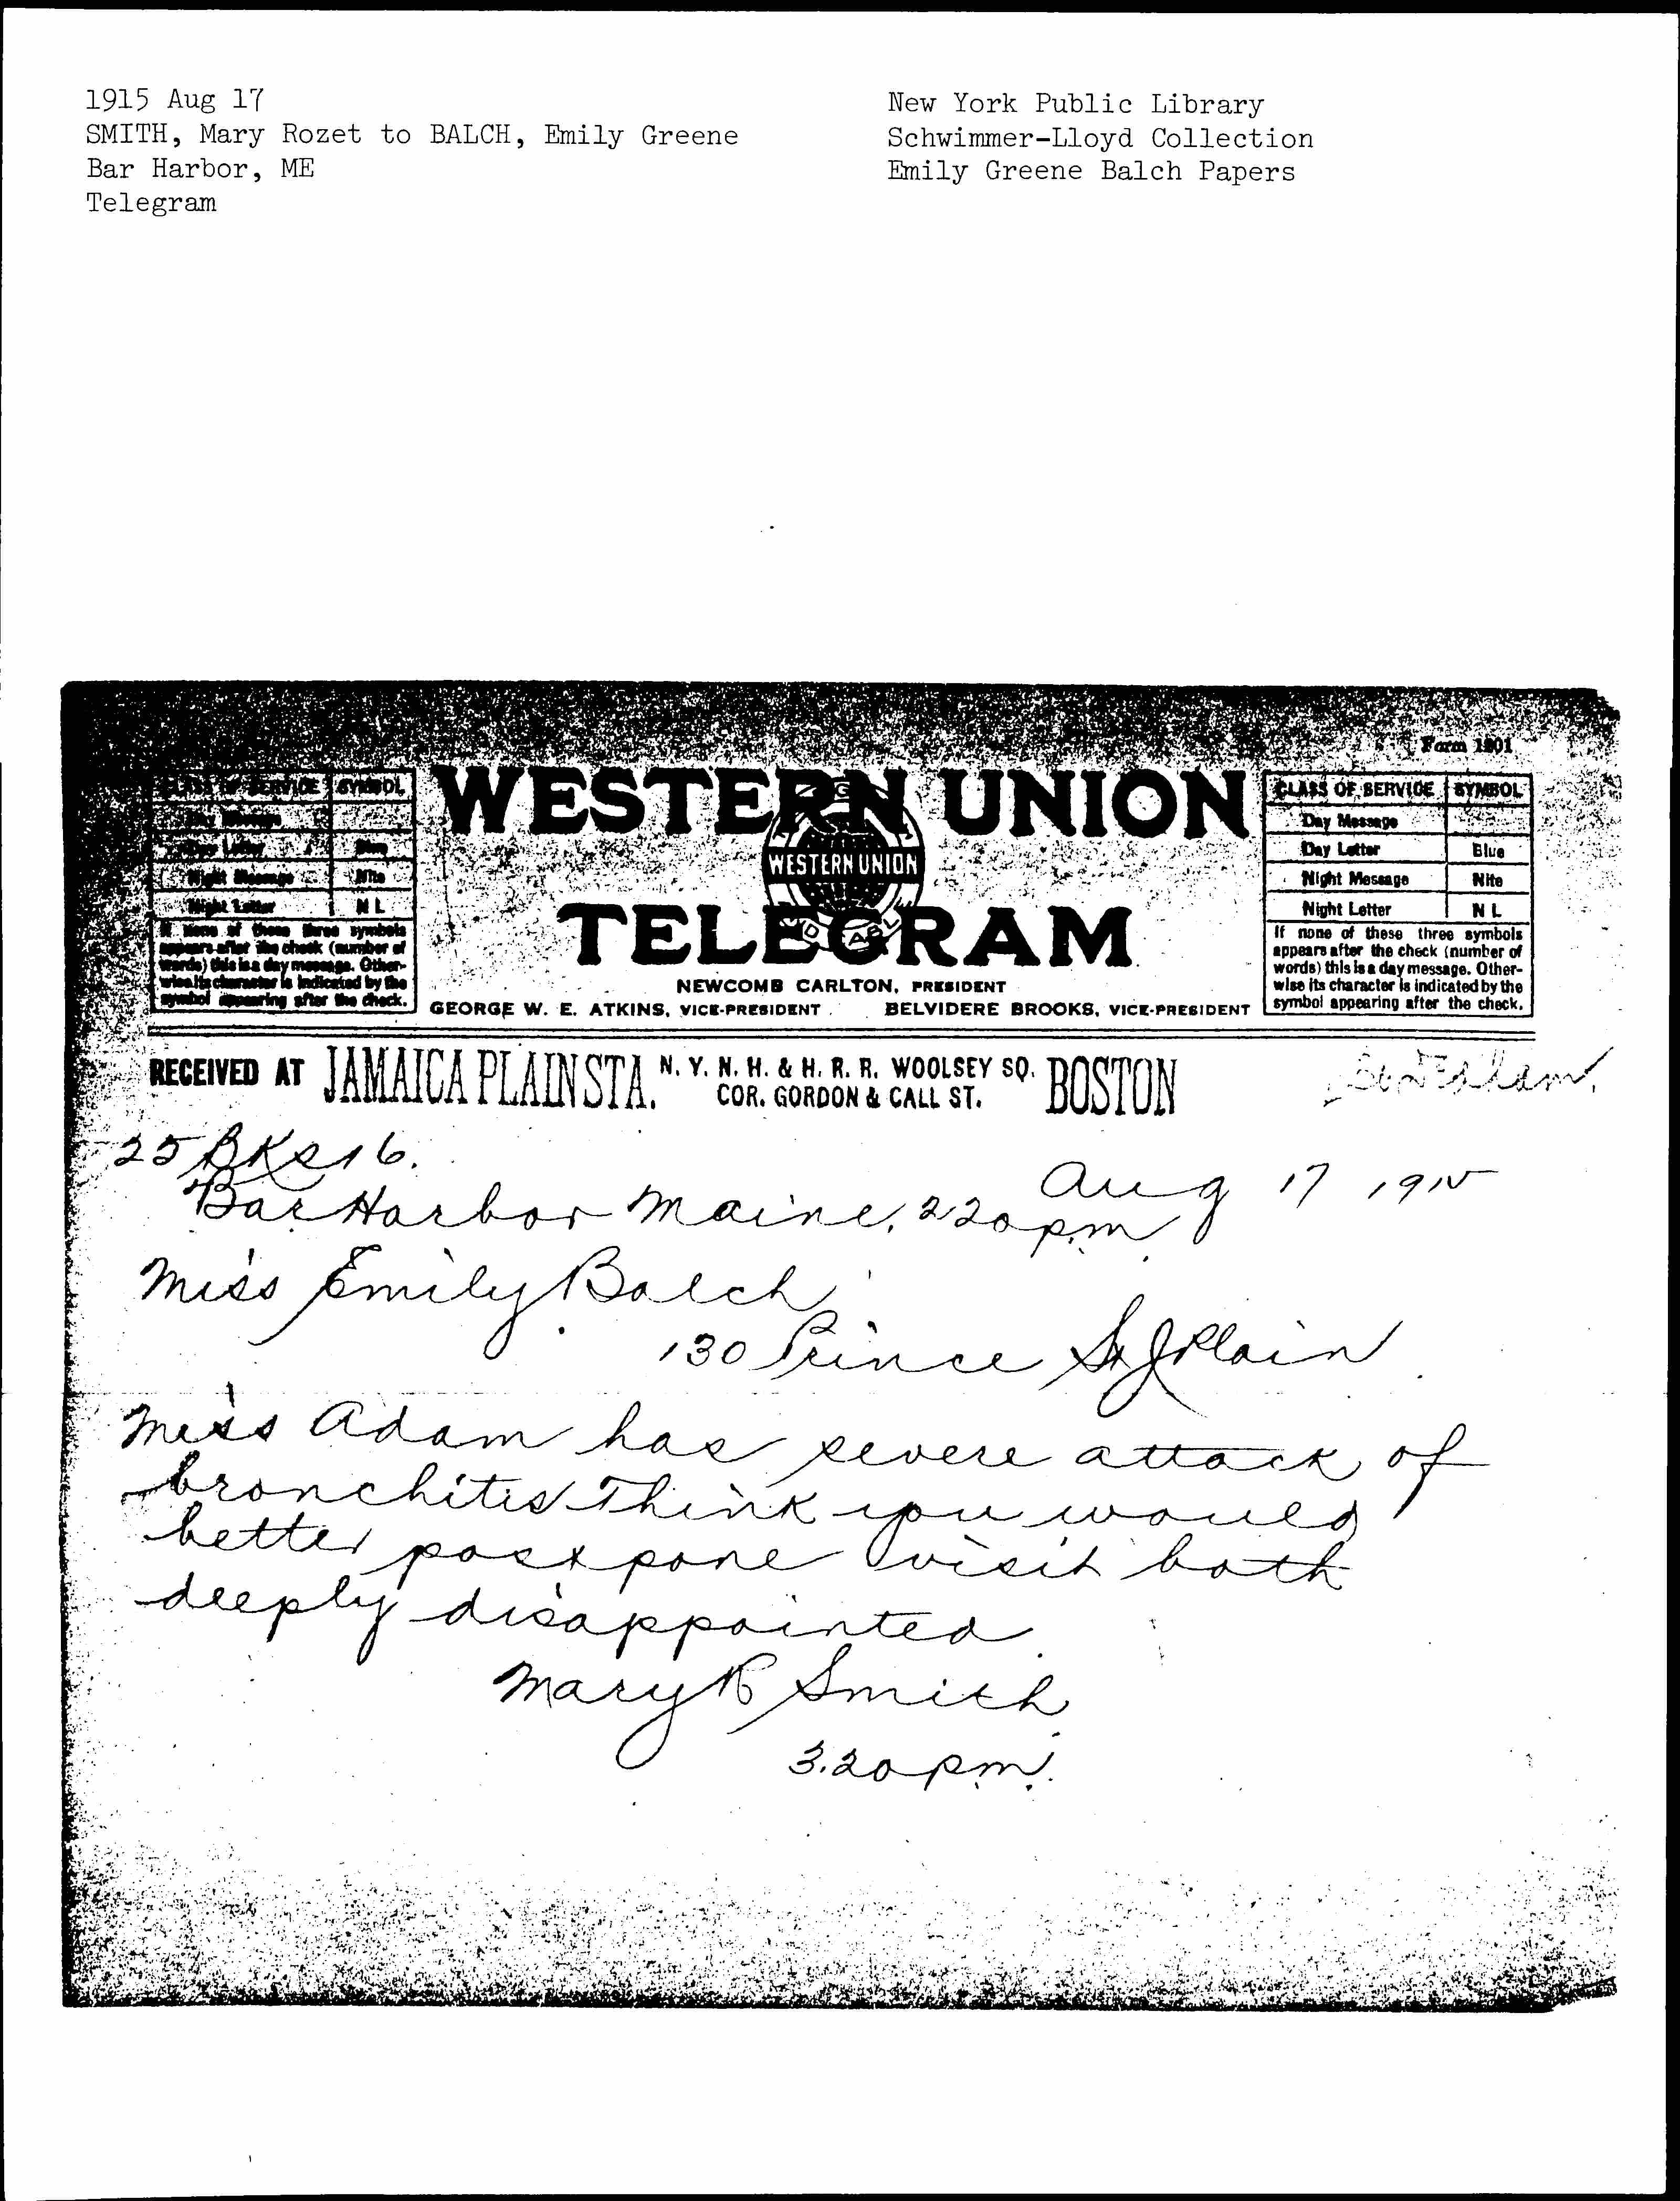 1915 Aug 17
SMITH, Mary Rozet to BALCH, Emily Greene
Bar Harbor, ME
Telegram
New York Public Library
Schwimmer-Lloyd Collection
Emily Greene Balch Papers
Form 1201
CLASS OF SERVICE SYMBOL
Day Message
Day Letter Blue
Night Message Nite
Night Letter N L
If none of these three symbols
appears after the check (number of
words) this is a day message. Other-
wise its character is indicated by the
symbol appearing after the check.
WESTERN UNION
WESTERN UNION
TELEGRAM
NEWCOMB CARLTON, PRESIDENT
GEORGE W. E. ATKINS, VICE-PRESIDENT BELVIDERE BROOKS, VICE-PRESIDENT
CLASS OF SERVICE SYMBOL
Day Message
Day Letter Blue
Night Message Nite
Night Letter N L
If none of these three symbols
appears after the check (number of
words) this is a day message. Other-
wise its character is indicated by the
symbol appearing after the check.
RECEIVED AT JAMAICA PLAIN STA. N. Y. N. H. & H. R. R. WOOLSEY SQ. BOSTON
COR. GORDON & CALL ST.
Dedham.
25 BK 16.
Bar Harbor Maine, 220 pm Aug 17 1915
Miss Emily Balch
130 Prince St J Plain
Miss Adam has severe attack of
bronchitis Think you would
better postpone visit both
deeply disappointed
Mary R Smith
3.20 pm.